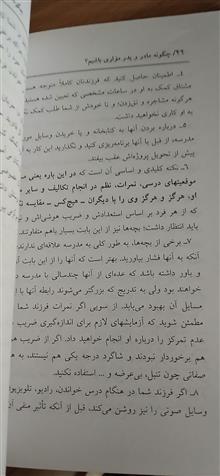 ۹۶/ چگونه مادر و پدر مؤثری باشیم؟
اطمینان حاصل کنید که فرزندتان کاملاً متوجه
مشتاق کمک به او در ساعات مشخصی که تعیین شده هستید
هرگونه مشاجره و نق‌زدن؛ و تا خودش از شما طلب کمک
به او کاری نخواهید داشت.
۵ـ درباره بردن آنها به کتابخانه و یا خریدن وسایل مور
مدرسه، از قبل با آنها برنامه‌ریزی کنید و نگذارید این کار به
پیش از تحویل پروژه‌اش عقب بیفتد.
۶ـ نکته کلیدی و اساسی آن است که در این باره یعنی
موقعیتهای درسی، نمرات، نظم در انجام تکالیف و سایر
او، هرگز و هرگز وی را با دیگران ـ هیچ‌کس ـ مقایسه
که از هر فرد بر اساس استعدادش و ضریب هوشی‌اش و
باید انتظار داشت؛ و بچه‌ها نیز از این بابت بسیار باهم متفاوتند.
۷ـ برخی از بچه‌ها، به طور کلی به مدرسه علاقه‌ای ندارند
آنکه به آنها فشار بیاورید. بهتر است که آنها را از این بابت
و باور داشته باشد که عده‌ای از آنها چندسالی با مدرسه
خواهند بود ولی به تدریج که بزرگتر می‌شوند رابطه آنها با
مسایل آن بهبود می‌یابد. از سویی اگر نمرات فرزند شما
مطمئن شوید که آزمایشهای لازم برای اندازه‌گیری ضریب
عدم تمرکز را درباره او انجام خواهید داد. اگر از ضریب
هم برخوردار نبودند و شاگرد درجه یکی هم نیستند، به
صفاتی چون تنبل، بی‌عرضه و ... استفاده نکنید.
۸ـ اگر فرزند شما در هنگام درس خواندن، رادیو، تلویزیون
وسایل صوتی را نیز روشن می‌کند، قبل از آنکه تأثیر منفی آن